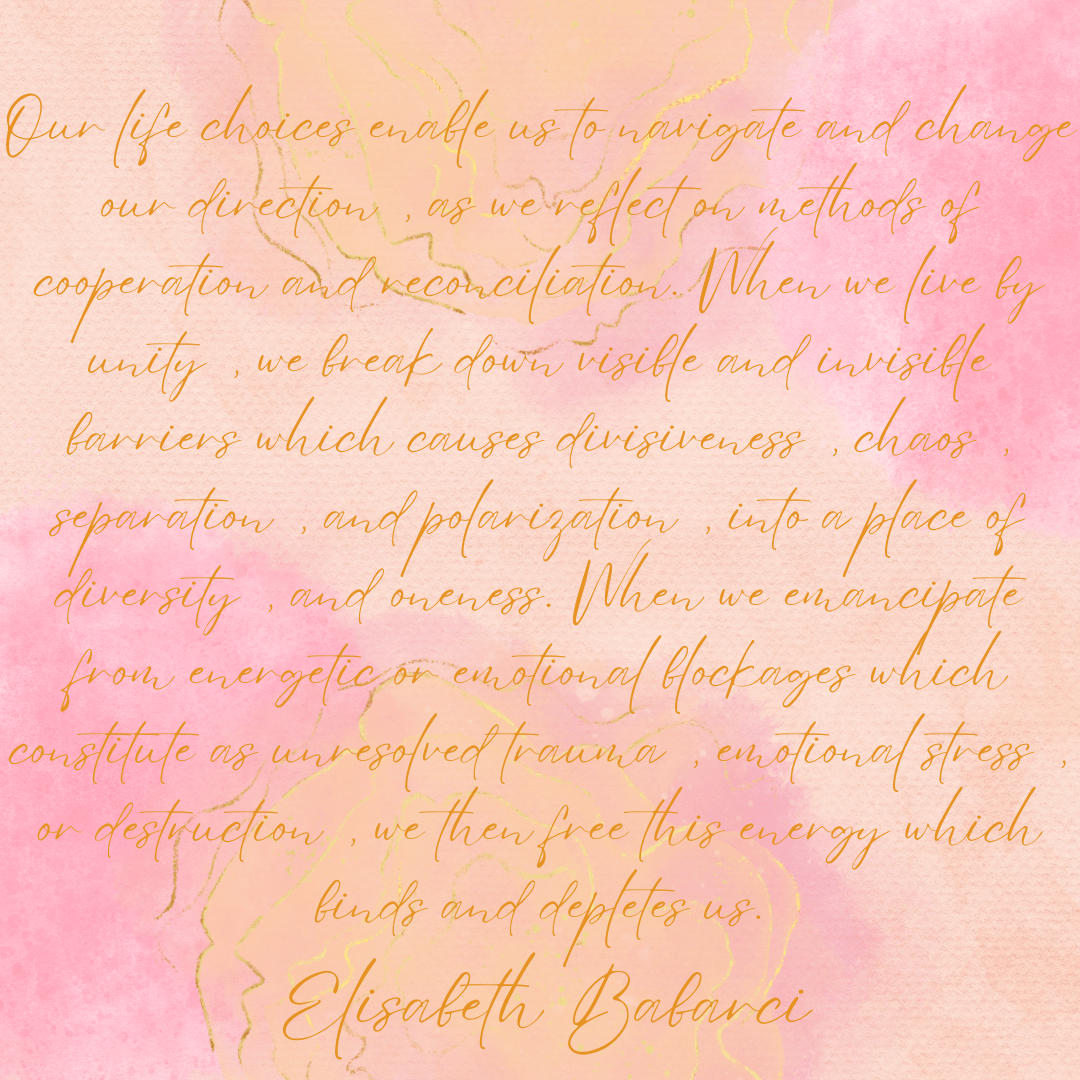 Our life choices enable us to navigate and change
our direction , as we reflect on methods of
cooperation and reconciliation. When we live by
unity , we break down visible and invisible
barriers which causes divisiveness , chaos ,
separation , and polarization , into a place of
diversity , and oneness. When we emancipate
from energetic or emotional blockages which
constitute as unresolved trauma , emotional stress ,
or destruction , we then free this energy which
binds and depletes us.
Elisabeth Babarci